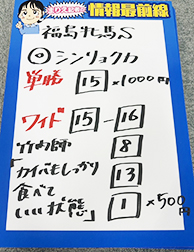 情報最前線
福島牝馬S
◎シンリョクカ
単勝 15 ×1000円
ワイド 15 - 16
竹内師 8
「カイバもしっかり 13
食べて
いい状態」 1 ×500円